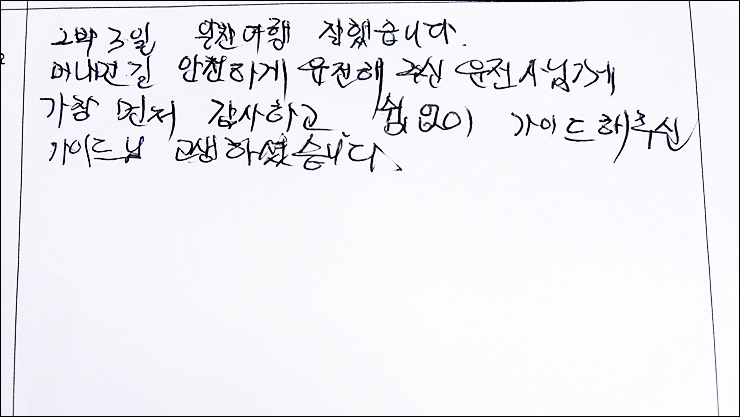 2박 3일 알찬여행 잘했습니다.
머나먼길 안전하게 운전해 주신 운전사님께
가장 먼저 감사하고 쉼없이 가이드해주신
가이드님 고생하셨습니다